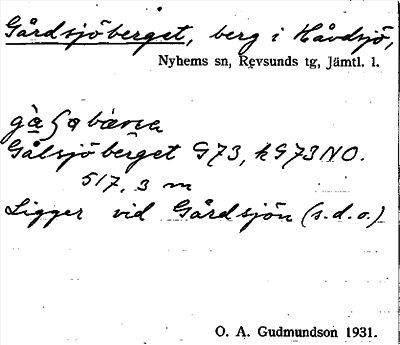 Gårdsjöberget, berg i Håvdsjö,
Nyhems sn, Revsunds tg, Jämtl. l.
Gålsjöberget G73, k G73 NO.
517, 3 m
Ligger vid Gårdsjön (s.d.o.)
O. A. Gudmundson 1931.